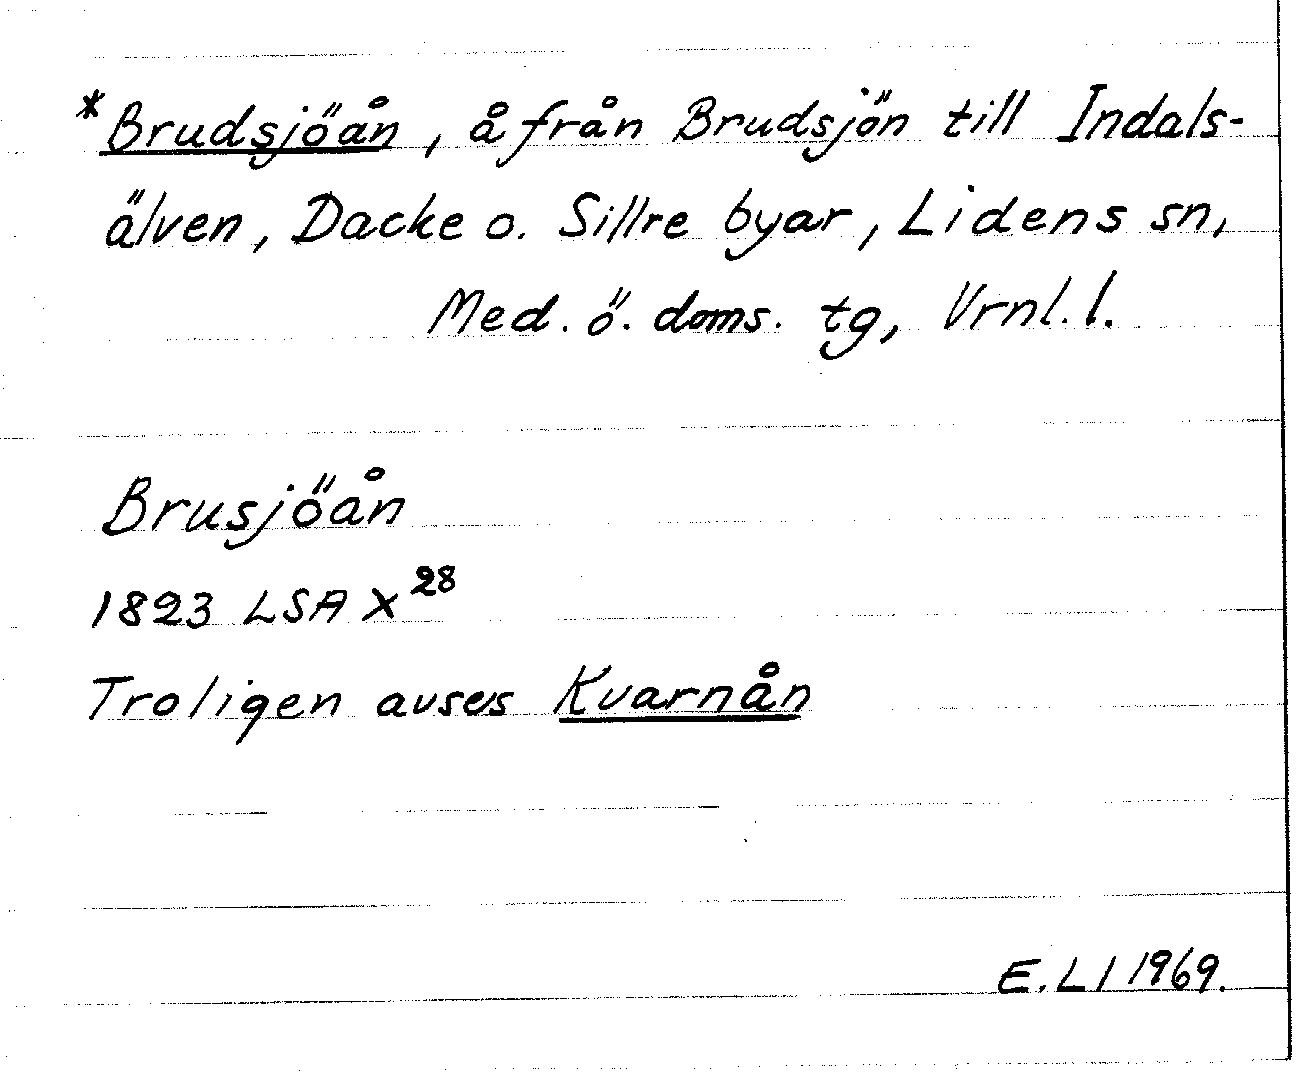 *Brudsjöån, å från Brudsjön till Indals-
älven, Dacke o. Sillre byar, Lidens sn,
Med. ö. doms. tg, Vrnl. l.
Brusjöån
1823 LSA X28
Troligen avses Kvarnån
E. L l 1969.